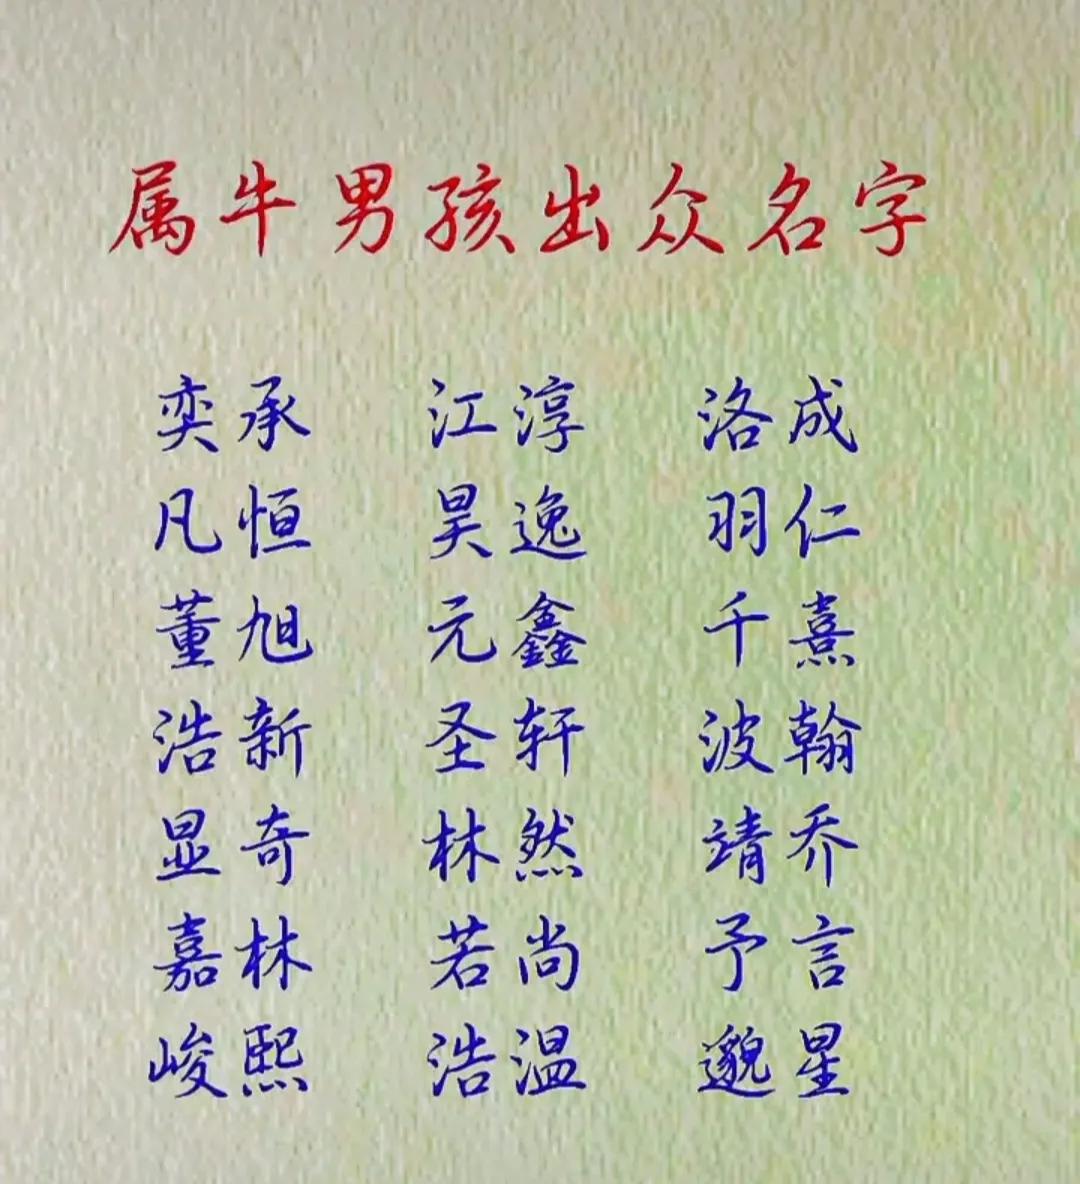 属牛男孩出众名字
奕承 江淳 洛成
凡恒 昊逸 羽仁
董旭 元鑫 千熹
浩新 圣轩 波翰
显奇 林然 靖乔
嘉林 若尚 予言
峻熙 浩温 邈星